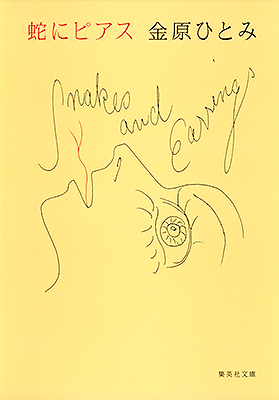 蛇にピアス 金原ひとみ
Snakes
and
Earrings
集英社文庫